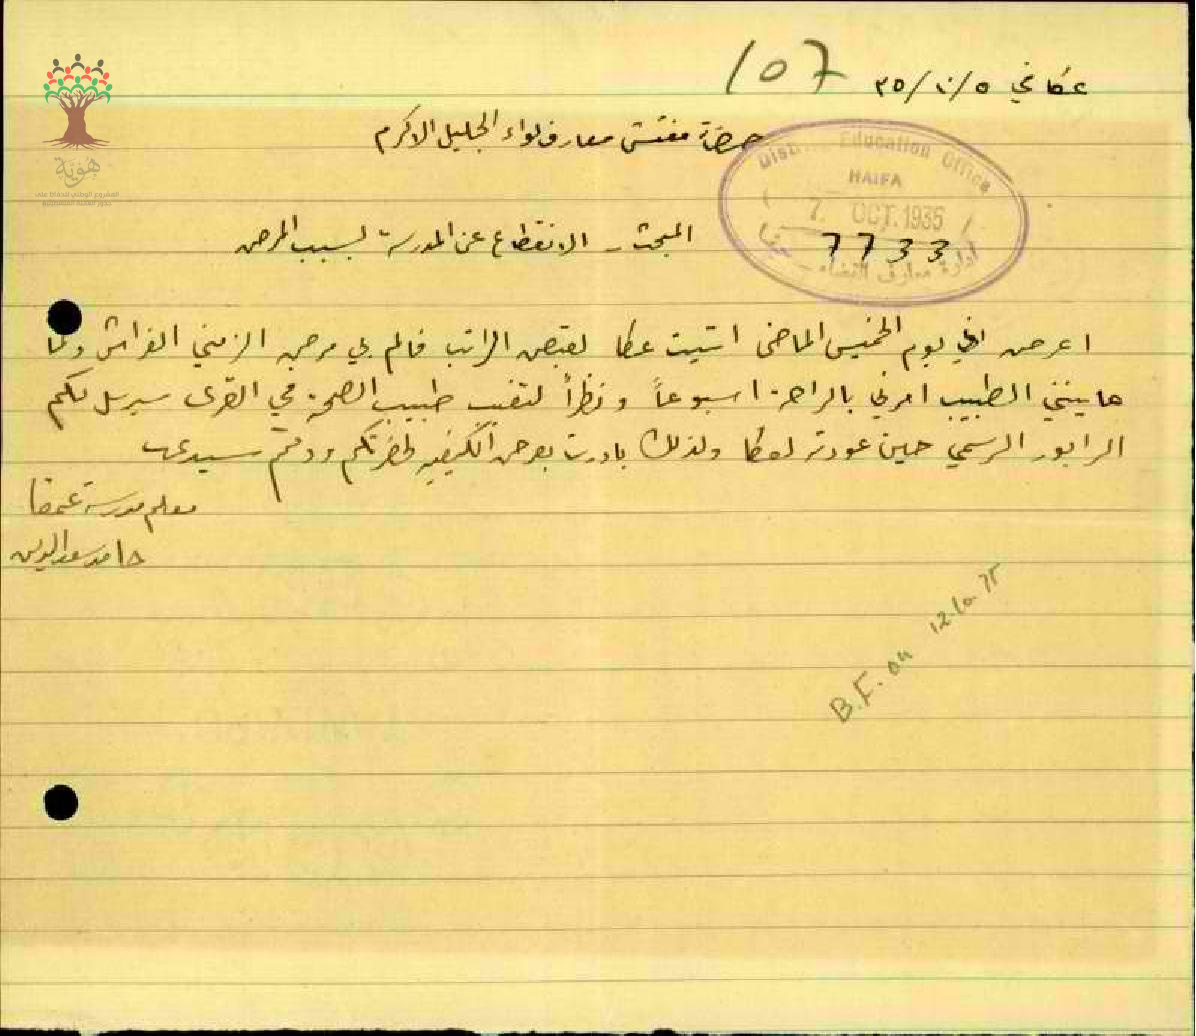 107
عكا في ٥/١٠/٣٥
حضرة مفتش معارف لواء الجليل الاكرم
District Education Office
HAIFA
7. OCT. 1935
7733
ادارة معارف القضاء - حيفا
المبحث - الانقطاع عن المدرسة بسبب المرض
اعرض اني يوم الخميس الماضي اتيت عكا لقبض الراتب فالم بي مرض الزمني الفراش ولما
عاينني الطبيب امرني بالراحة اسبوعاً ونظراً لتغيب طبيب الصحة في القرى سيرسل لكم
الرابور الرسمي حين عودته لعكا ولذلك بادرت بعرض الكيفية لحضرتكم ودمتم سيدي
معلم مدرسة عمقا
حامد سعد الدين
B.F. on 12.10.35
هوية
المشروع الوطني للحفاظ على
جذور العائلة الفلسطينية